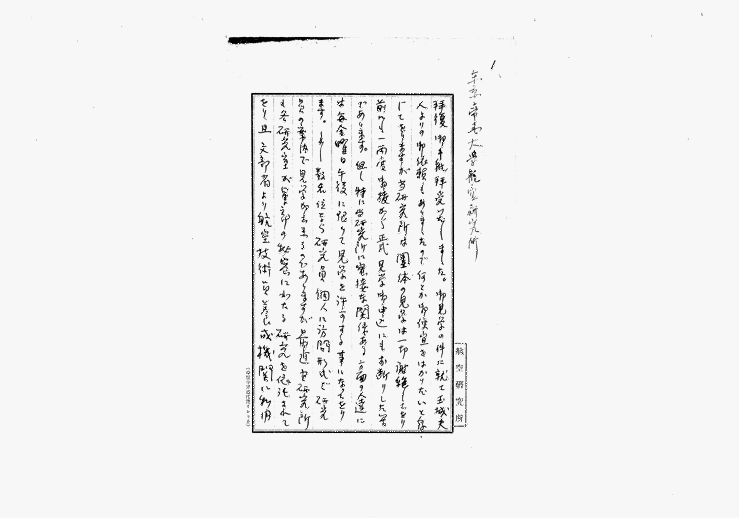 東京帝国大学航空研究所
拝復 御手紙拝受致しました。御見学の件に就て玉城夫
人よりの御依頼もありましたので何とか御便宜をはかりたいと存
じて をりますが当研究所は團体の見学は一切謝絶してをり
前にも一両度 直接から正式見学御申込にもお断りした筈
であります。但し特に当研究所に密接な関係ある方面の人達に
は毎金曜日午後に限りて見学を許可する事になってをり
ます。しかし数名位なら研究員個人に訪問形式で研究
員の案内で見学出来るのでありますが最近 研究所
も各研究室が軍部の秘密にわたる研究を依託されて
をり且 文部省より航空技術員養成機関に利用
航空研究所